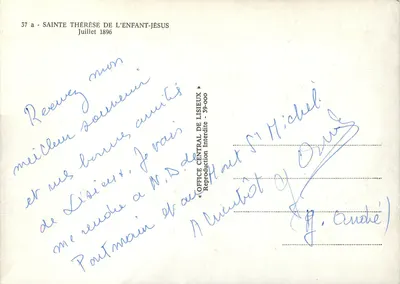 37 a - SAINTE THÉRÈSE DE L'ENFANT-JÉSUS
Juillet 1896
Recevez mon
meilleur souvenir
et mes bonnes amitiés
de Lisieux. Je vais
me rendre à N.D. de
Pontmain et au Mont St Michel.
A bientôt
(J. André)
* OFFICE CENTRAL DE LISIEUX *
Reproduction Interdite - 59-000